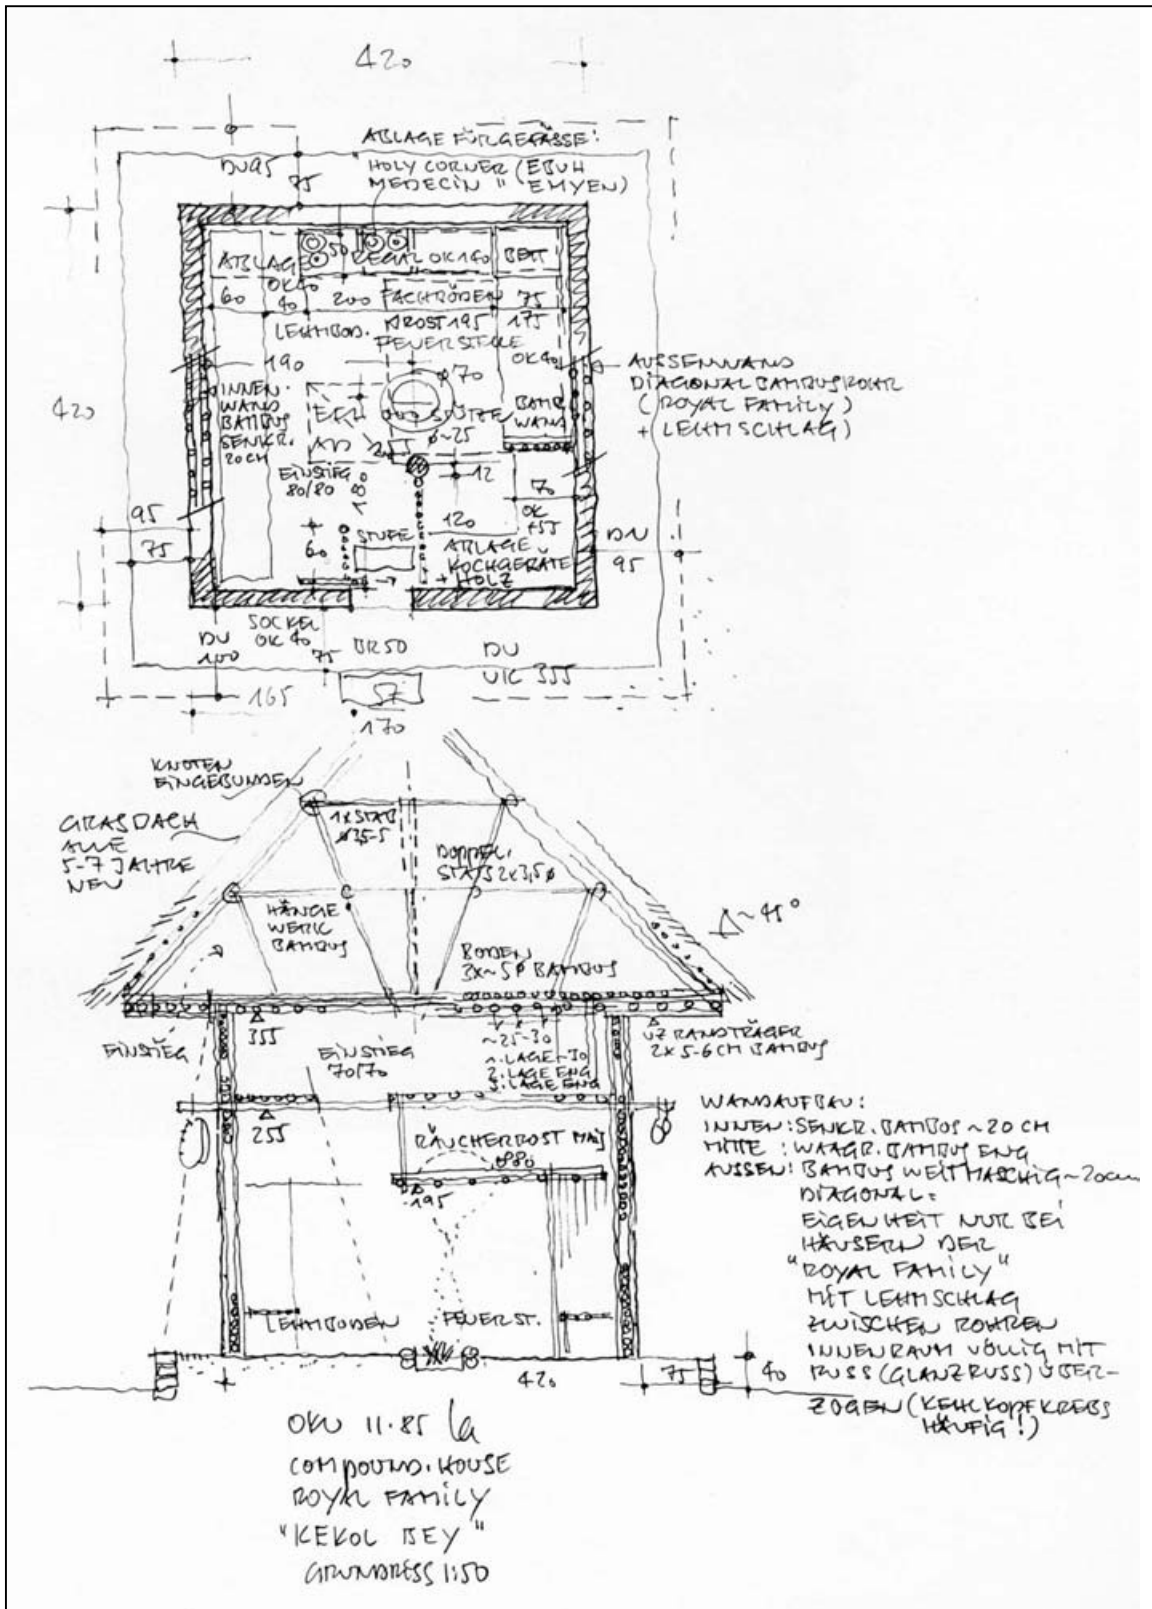 420
ABLAGE FÜR GEFÄSSE:
HOLY CORNER (EBUH
MEDECIN " EMYEN)
DU 95
75
ABLAGE
OK 40
50
REGAL OK 140
BETT
60
40
200
FACHBÖDEN
75
LEHMBOD.
ROST 195
175
FEUERSTELLE
OK 40
190
ø 70
AUSSENWAND
DIAGONAL BAMBUSROHR
(ROYAL FAMILY)
+ LEHMSCHLAG)
420
INNEN-
WAND
BAMBUS
SENKR.
20 CM
STÜTZE
ø~25
BAMB.
WAND
EINSTIEG
80/80
12
70
OK
+55
95
75
60
STUFE
120
ABLAGE
KOCHGERÄTE
+ HOLZ
DU
95
SOCKEL
OK 40
DU
100
75
BR 50
DU
UK 355
165
ST
170
KNOTEN
EINGEBUNDEN
GRASDACH
ALLE
5-7 JAHRE
NEU
1X STAB
ø 3,5-5
DOPPEL.
STAB 2x3,5ø
HÄNGE
WERK
BAMBUS
~45°
BODEN
3x~5ø BAMBUS
EINSTIEG
355
EINSTIEG
70/70
~25-30
1. LAGE-30
2. LAGE ENG
3. LAGE ENG
UZ RANDTRÄGER
2x5-6CM BAMBUS
255
RÄUCHERROST MAIS
195
WANDAUFBAU:
INNEN: SENKR. BAMBUS ~20 CM
MITTE: WAAGR. BAMBUS ENG
AUSSEN: BAMBUS WEITMASCHIG ~20cm
DIAGONAL =
EIGENHEIT NUR BEI
HÄUSERN DER
"ROYAL FAMILY"
MIT LEHMSCHLAG
ZWISCHEN ROHREN
INNENRAUM VÖLLIG MIT
RUSS (GLANZRUSS) ÜBER-
ZOGEN (KEHLKOPFKREBS
HÄUFIG!)
LEHMBODEN
FEUERST.
420
75
40
OKU 11.85
COMPOUND.HOUSE
ROYAL FAMILY
"KEKOL BEY"
GRUNDRESS 1:50